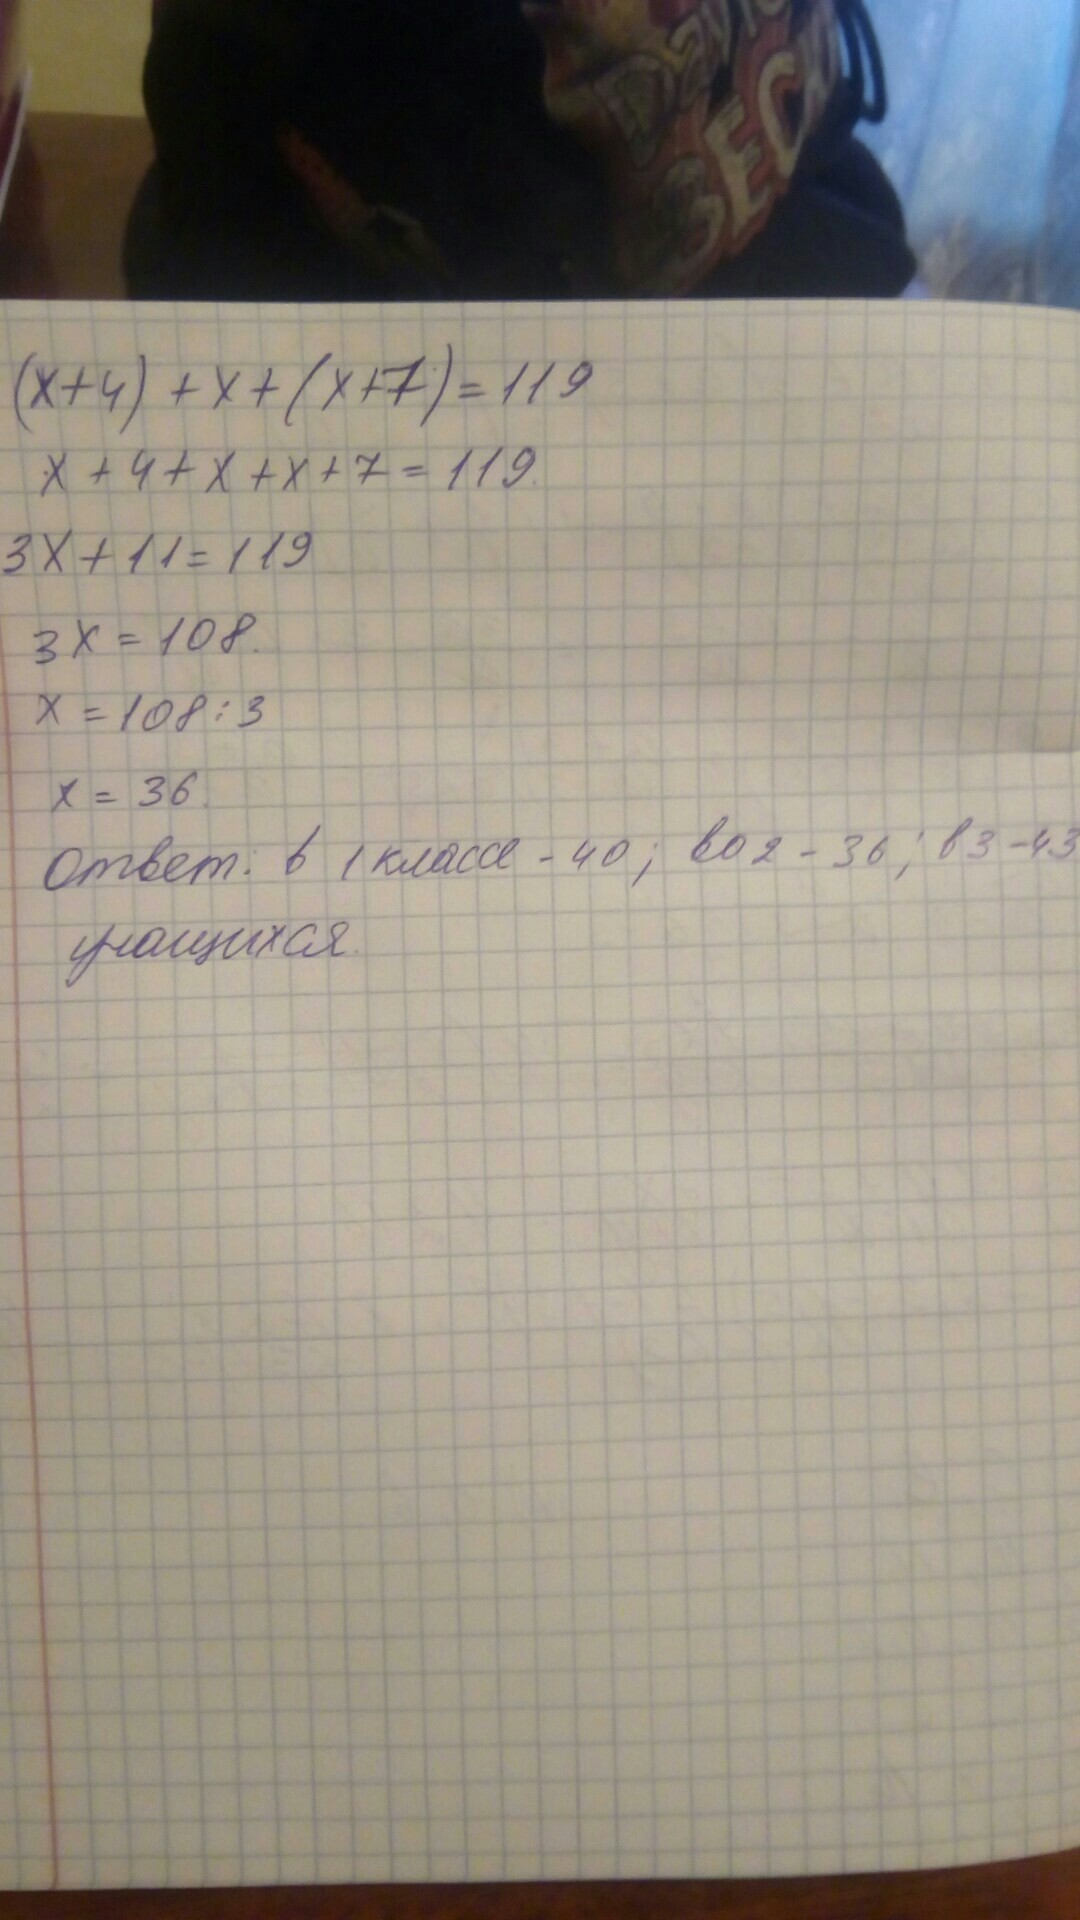 (x+4)+x+(x+7)=119
x+4+x+x+7=119.
3x+11=119
3x=108.
x=108:3
x=36.
Ответ: в 1 классе - 40; во 2 - 36; в 3 - 43
учащихся.